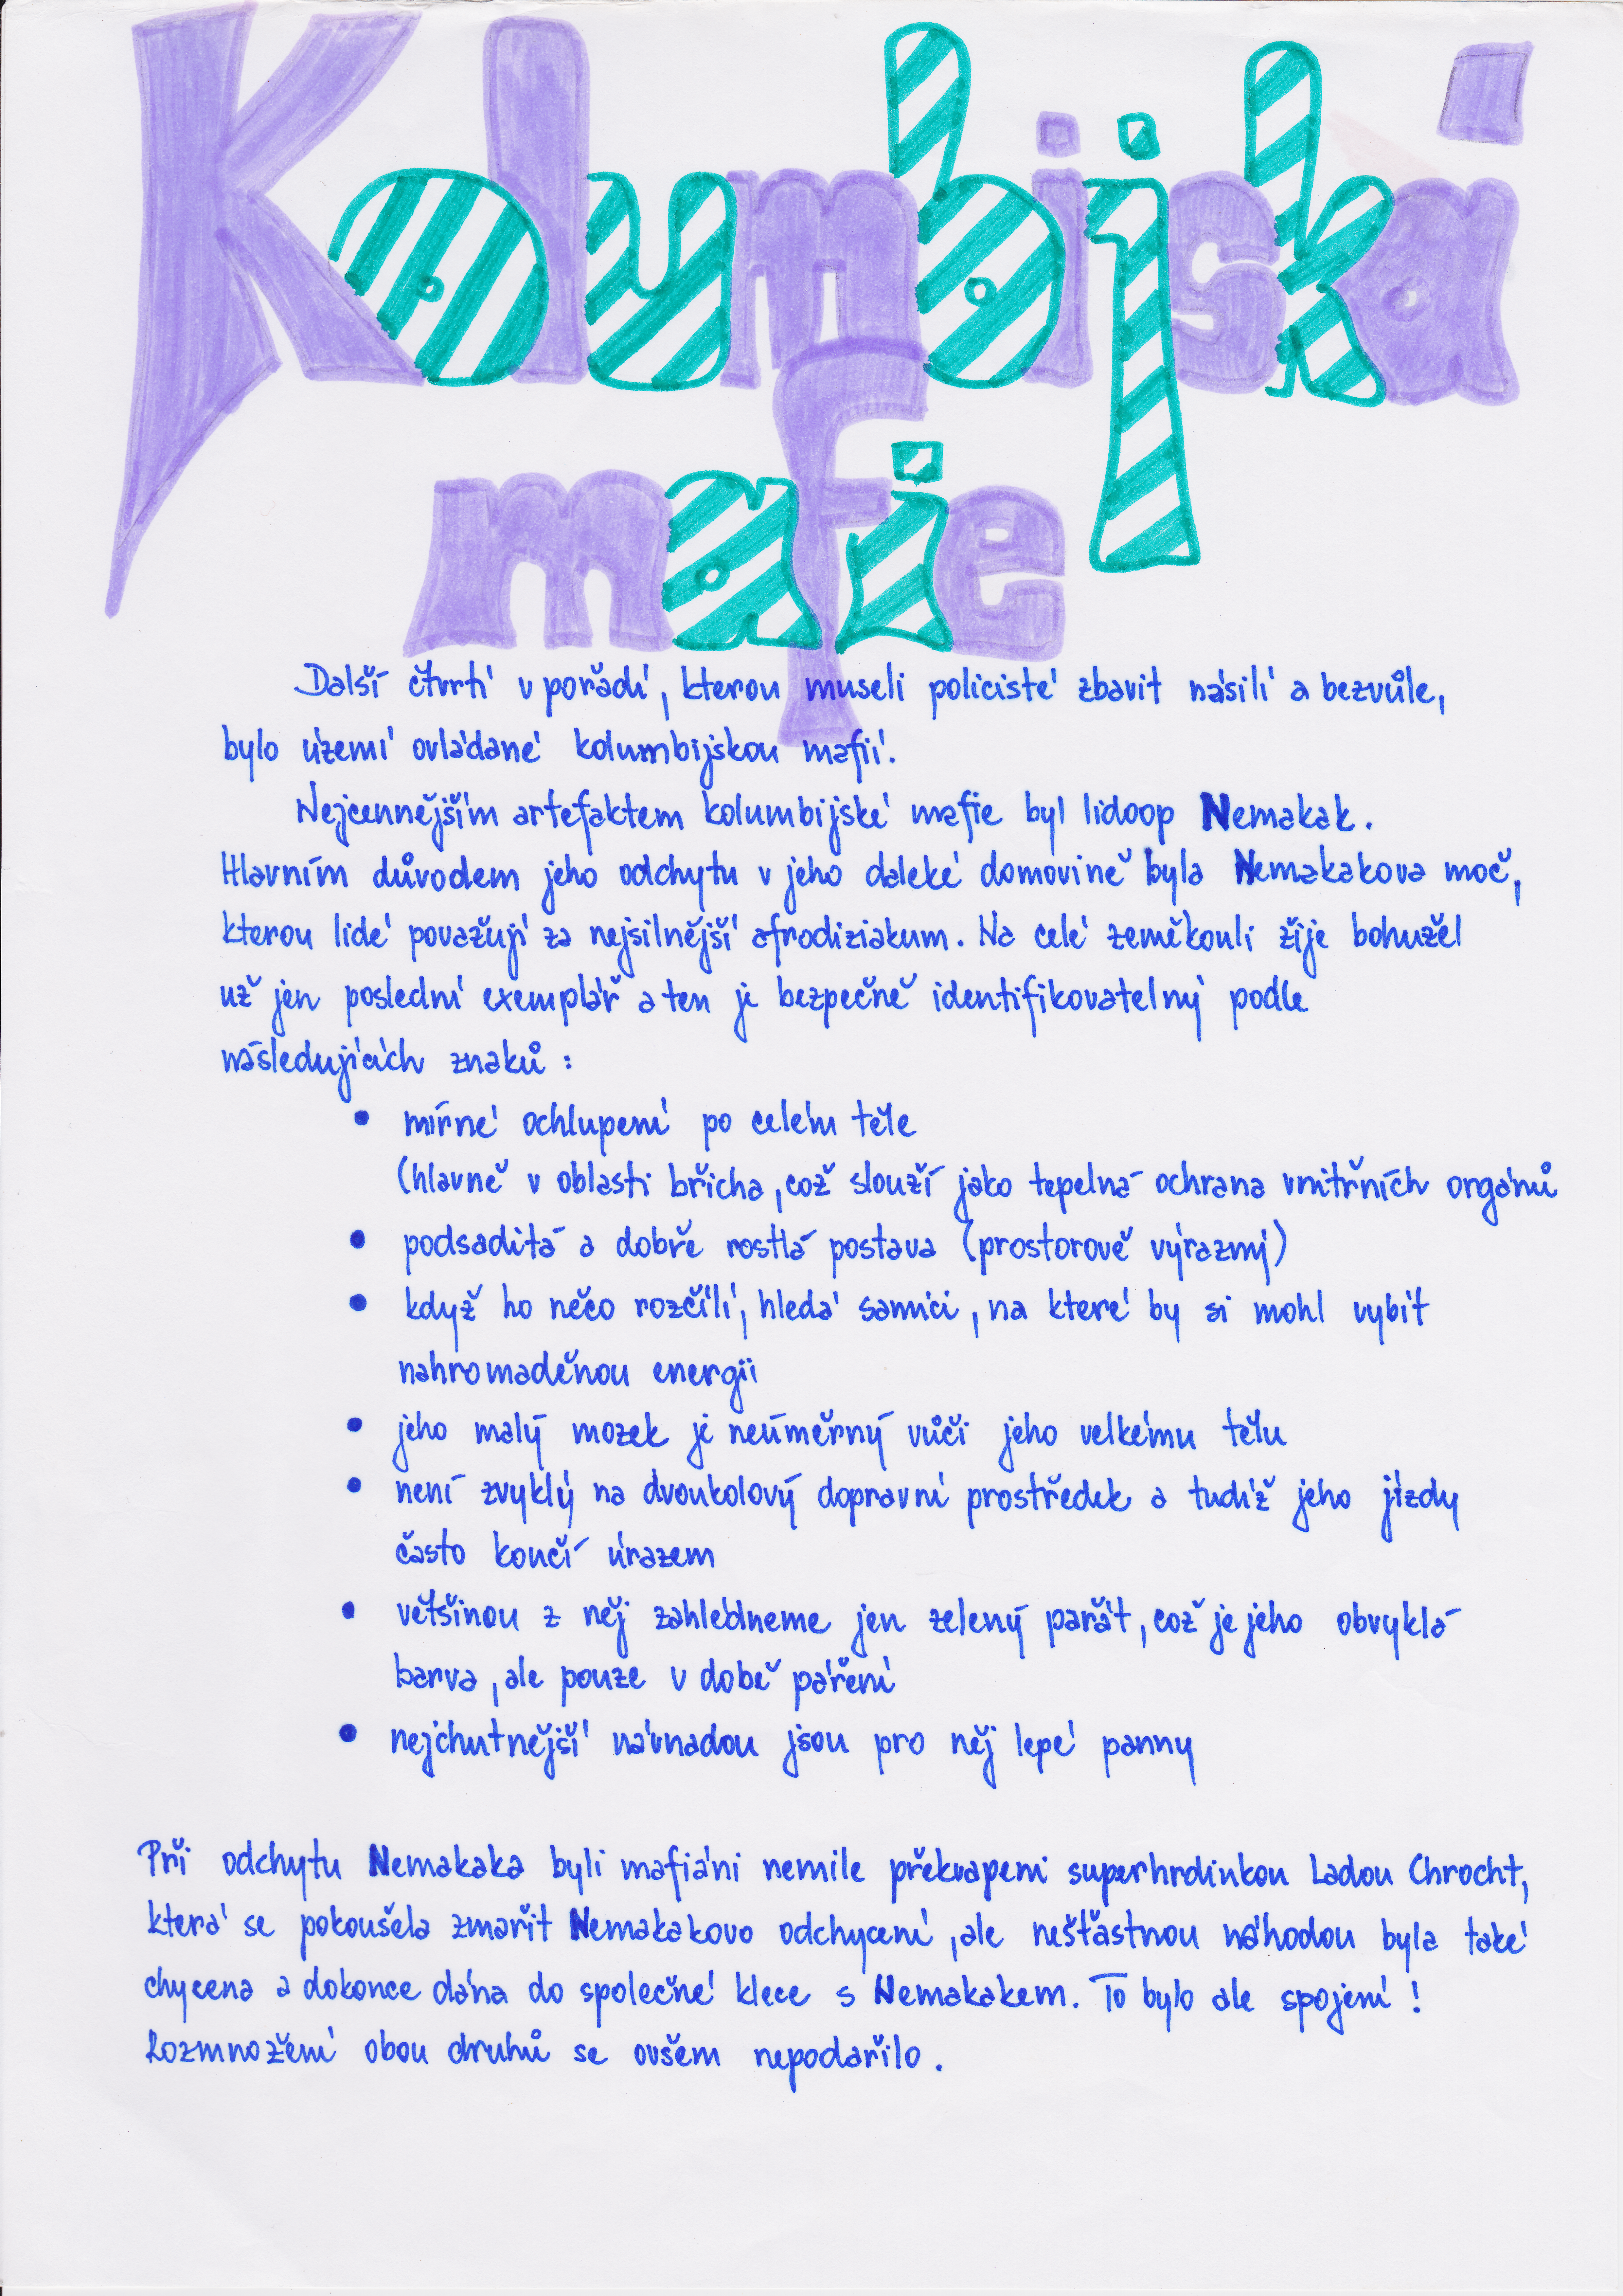 Kolumbijská
mafie
Další čtvrtí v pořadí, kterou museli policisté zbavit násilí a bezvůle,
bylo území ovládané kolumbijskou mafií.
Nejcennějším artefaktem kolumbijské mafie byl lidoop Nemakak.
Hlavním důvodem jeho odchytu v jeho daleké domovině byla Nemakakova moč,
kterou lidé považují za nejsilnější afrodiziakum. Na celé zeměkouli žije bohužel
už jen poslední exemplář a ten je bezpečně identifikovatelný podle
následujících znaků:
• mírné ochlupení po celém těle
(hlavně v oblasti břicha, což slouží jako tepelná ochrana vnitřních orgánů
• podsaditá a dobře rostlá postava (prostorově výrazný)
• když ho něco rozčílí, hledá samici, na které by si mohl vybít
nahromaděnou energii
• jeho malý mozek je neúměrný vůči jeho velkému tělu
• není zvyklý na dvoukolový dopravní prostředek a tudíž jeho jízdy
často končí úrazem
• většinou z něj zahlédneme jen zelený parát, což je jeho obvyklá
barva, ale pouze v době páření
• nejchutnější návnadou jsou pro něj lepé panny
Při odchytu Nemakaka byli mafiáni nemile překvapeni superhrdinkou Ladou Chrocht,
která se pokoušela zmařit Nemakakovo odchycení, ale nešťastnou náhodou byla také
chycena a dokonce dána do společné klece s Nemakakem. To bylo ale spojení!
Rozmnožení obou druhů se ovšem nepodařilo.